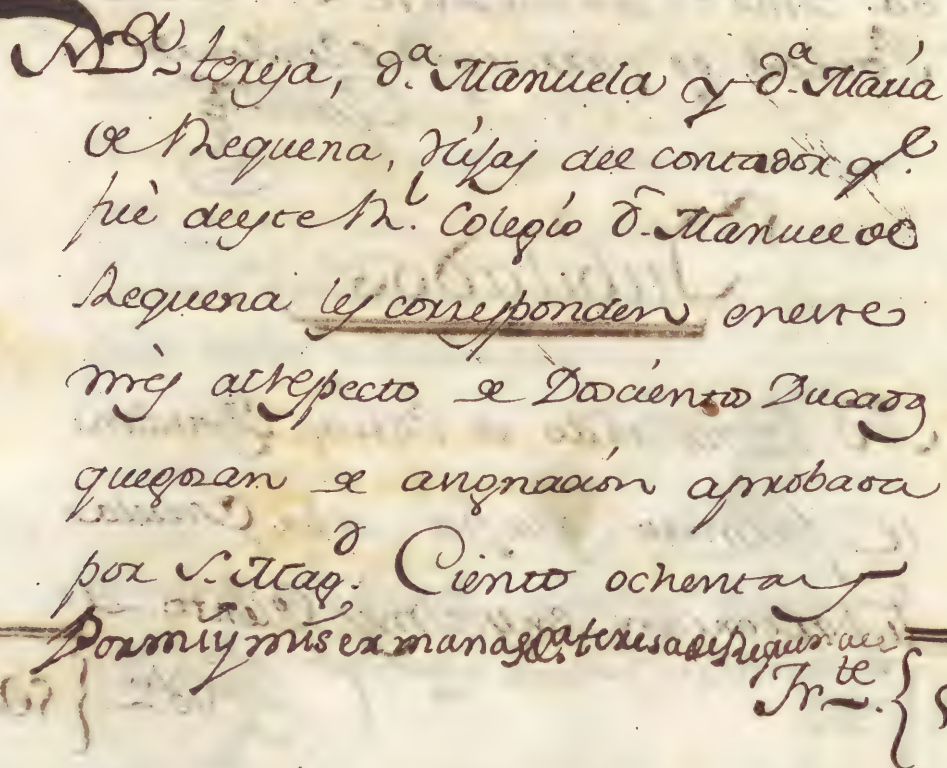 A D.ª teresa, d.ª Manuela y d.ª María
de Requena, hijas del contador q.e
fué deeste R.l Colegio d.n Manuel de
Requena les corresponden eneste
mes al respecto de Doscientos Ducados
quegozan de asignación aprobada
por S. Mag.d Ciento ochenta y
Pormi y mis ermanas d.ª teresa de Requena